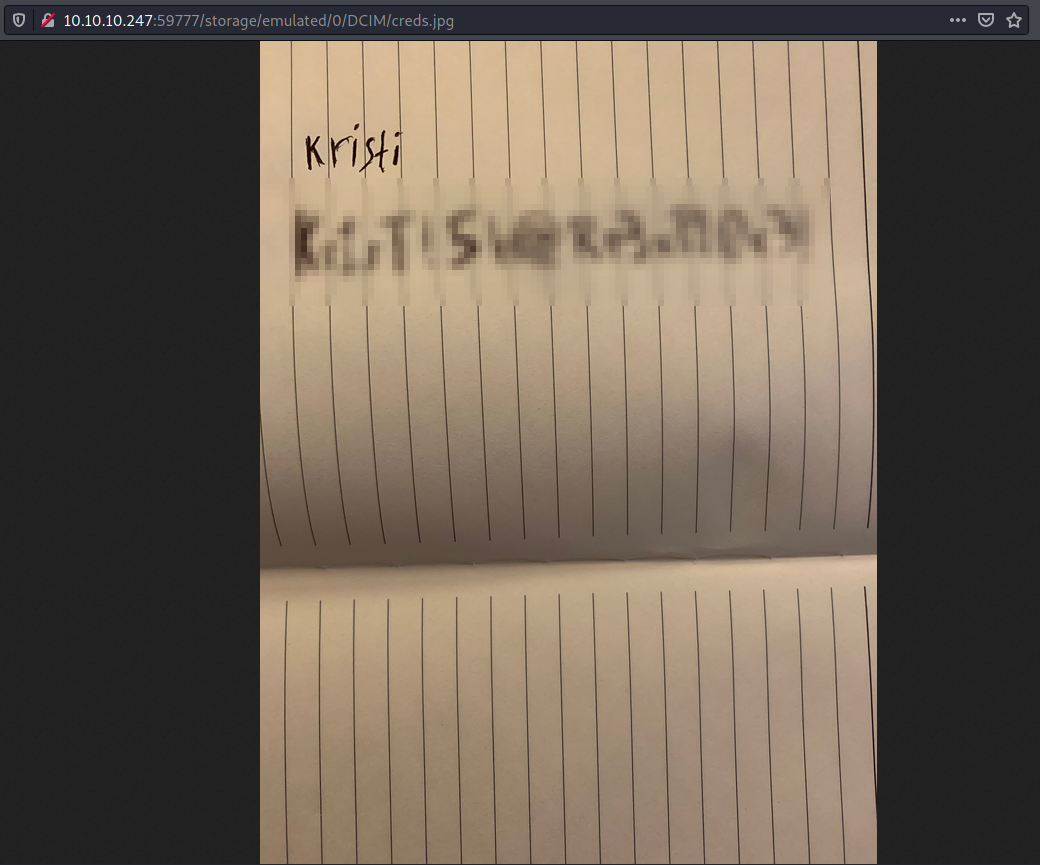 10.10.10.247:59777/storage/emulated/0/DCIM/creds.jpg
Kristi